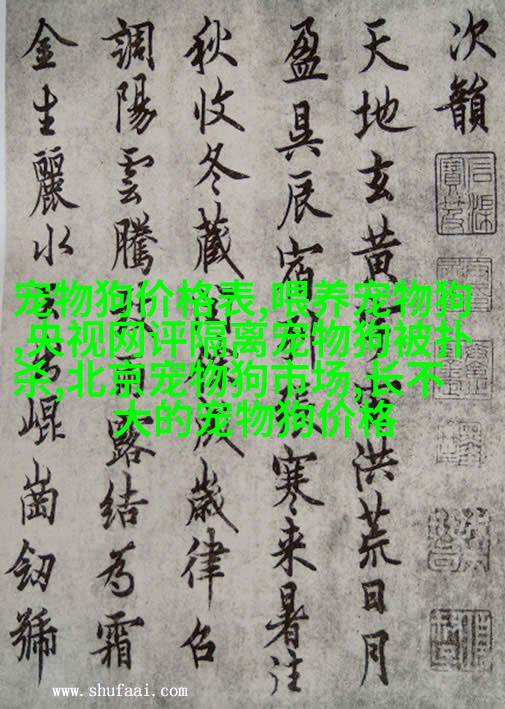 次韻
天地玄黃洪荒日月
盈昃辰宿列張寒来暑往
秋收冬藏歲律召
調陽雲騰雨露結為霜
金生麗水出崐崗劒號
宠物狗价格表,喂养宠物狗
,央视网评隔离宠物狗被扑
杀,北京宠物狗市场,长不
大的宠物狗价格
www.shufaai.com